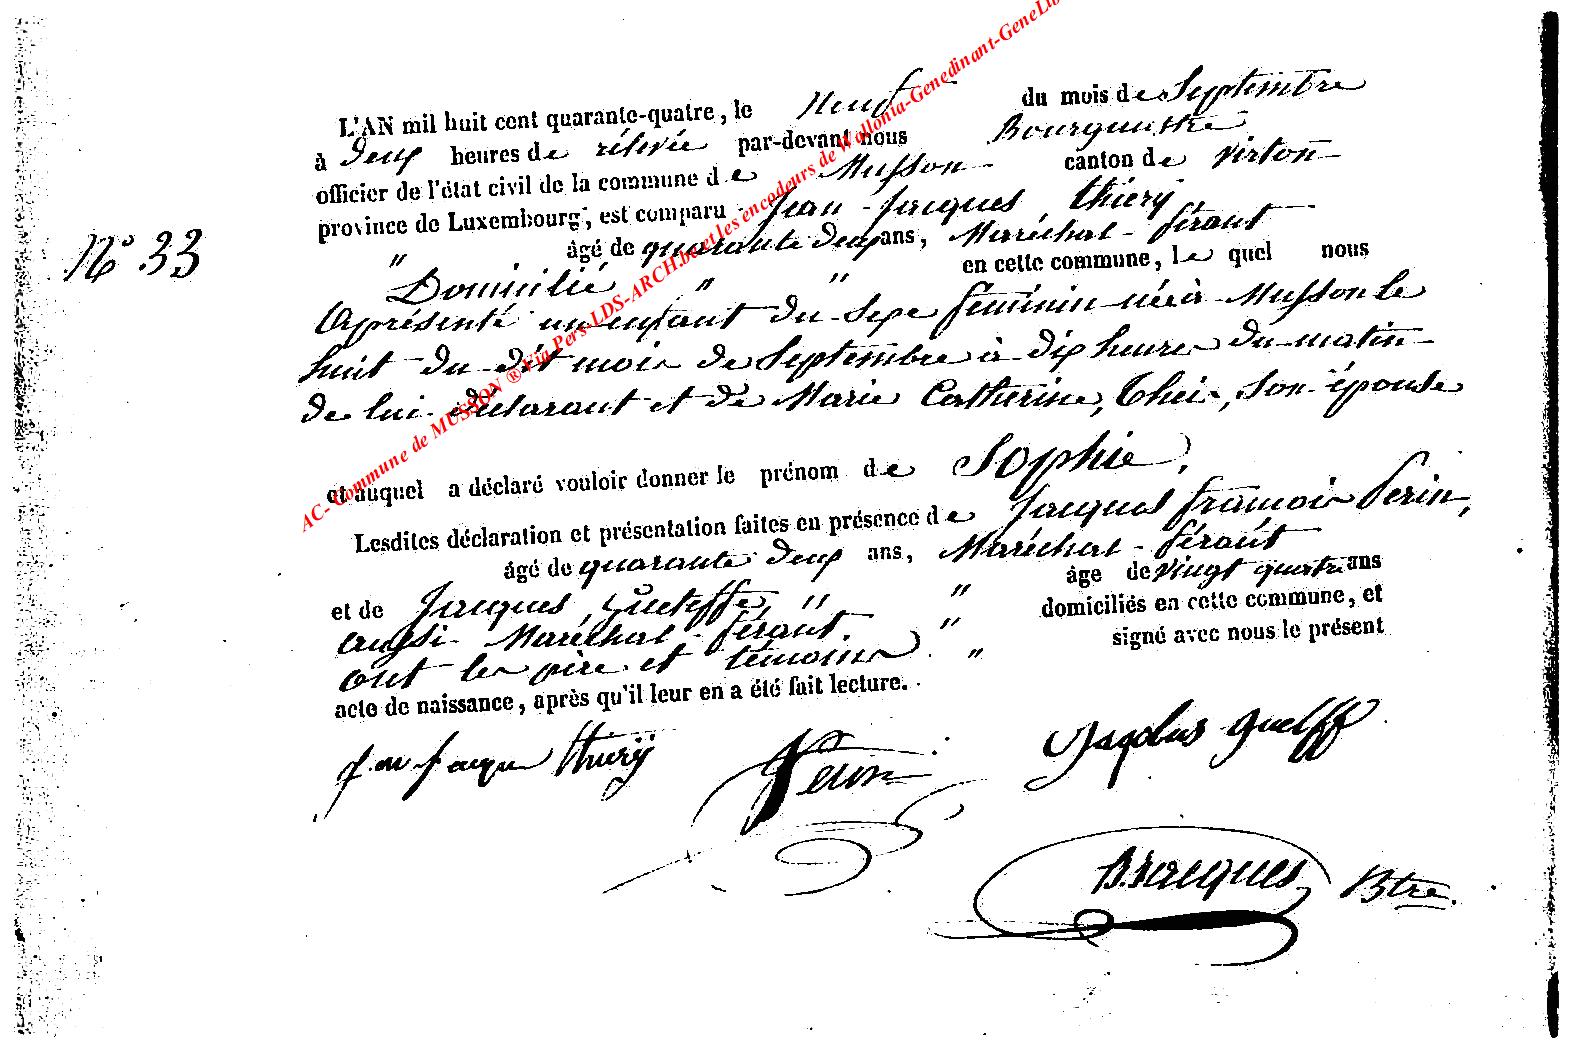 L'AN mil huit cent quarante-quatre, le neuf du mois de Septembre
à deux heures de rélevée par-devant nous Bourguestre
officier de l'état civil de la commune de Musson canton de virton
province de Luxembourg, est comparu Jean-Jacques thiéry
N° 33
" âgé de quarante deux ans, Maréchal-férant
Domicilié " " en cette commune, lequel nous
a présenté un enfant du sexe féminin née à Musson le
huit du dit mois de Septembre à dix heures du matin
de lui déclarant et de Marie Catherine, Theis, son épouse
et auquel a déclaré vouloir donner le prénom de Sophie,
Lesdites déclaration et présentation faites en présence de Jacques françois Perin,
âgé de quarante deux ans, Maréchal-férant
et de Jacques " " âge de vingt quatre ans
aussi Maréchal-férant. " domiciliés en cette commune, et
ont les père et témoins " signé avec nous le présent
acte de naissance, après qu'il leur en a été fait lecture.
jean jacque thierÿ Perin Jacobus Guelff
B. Jacques Btre.
AC- Commune de MUSSON ® Via Pers-LDS-ARCH.be et les encodeurs de Wallonia-Genedinant-GeneLib